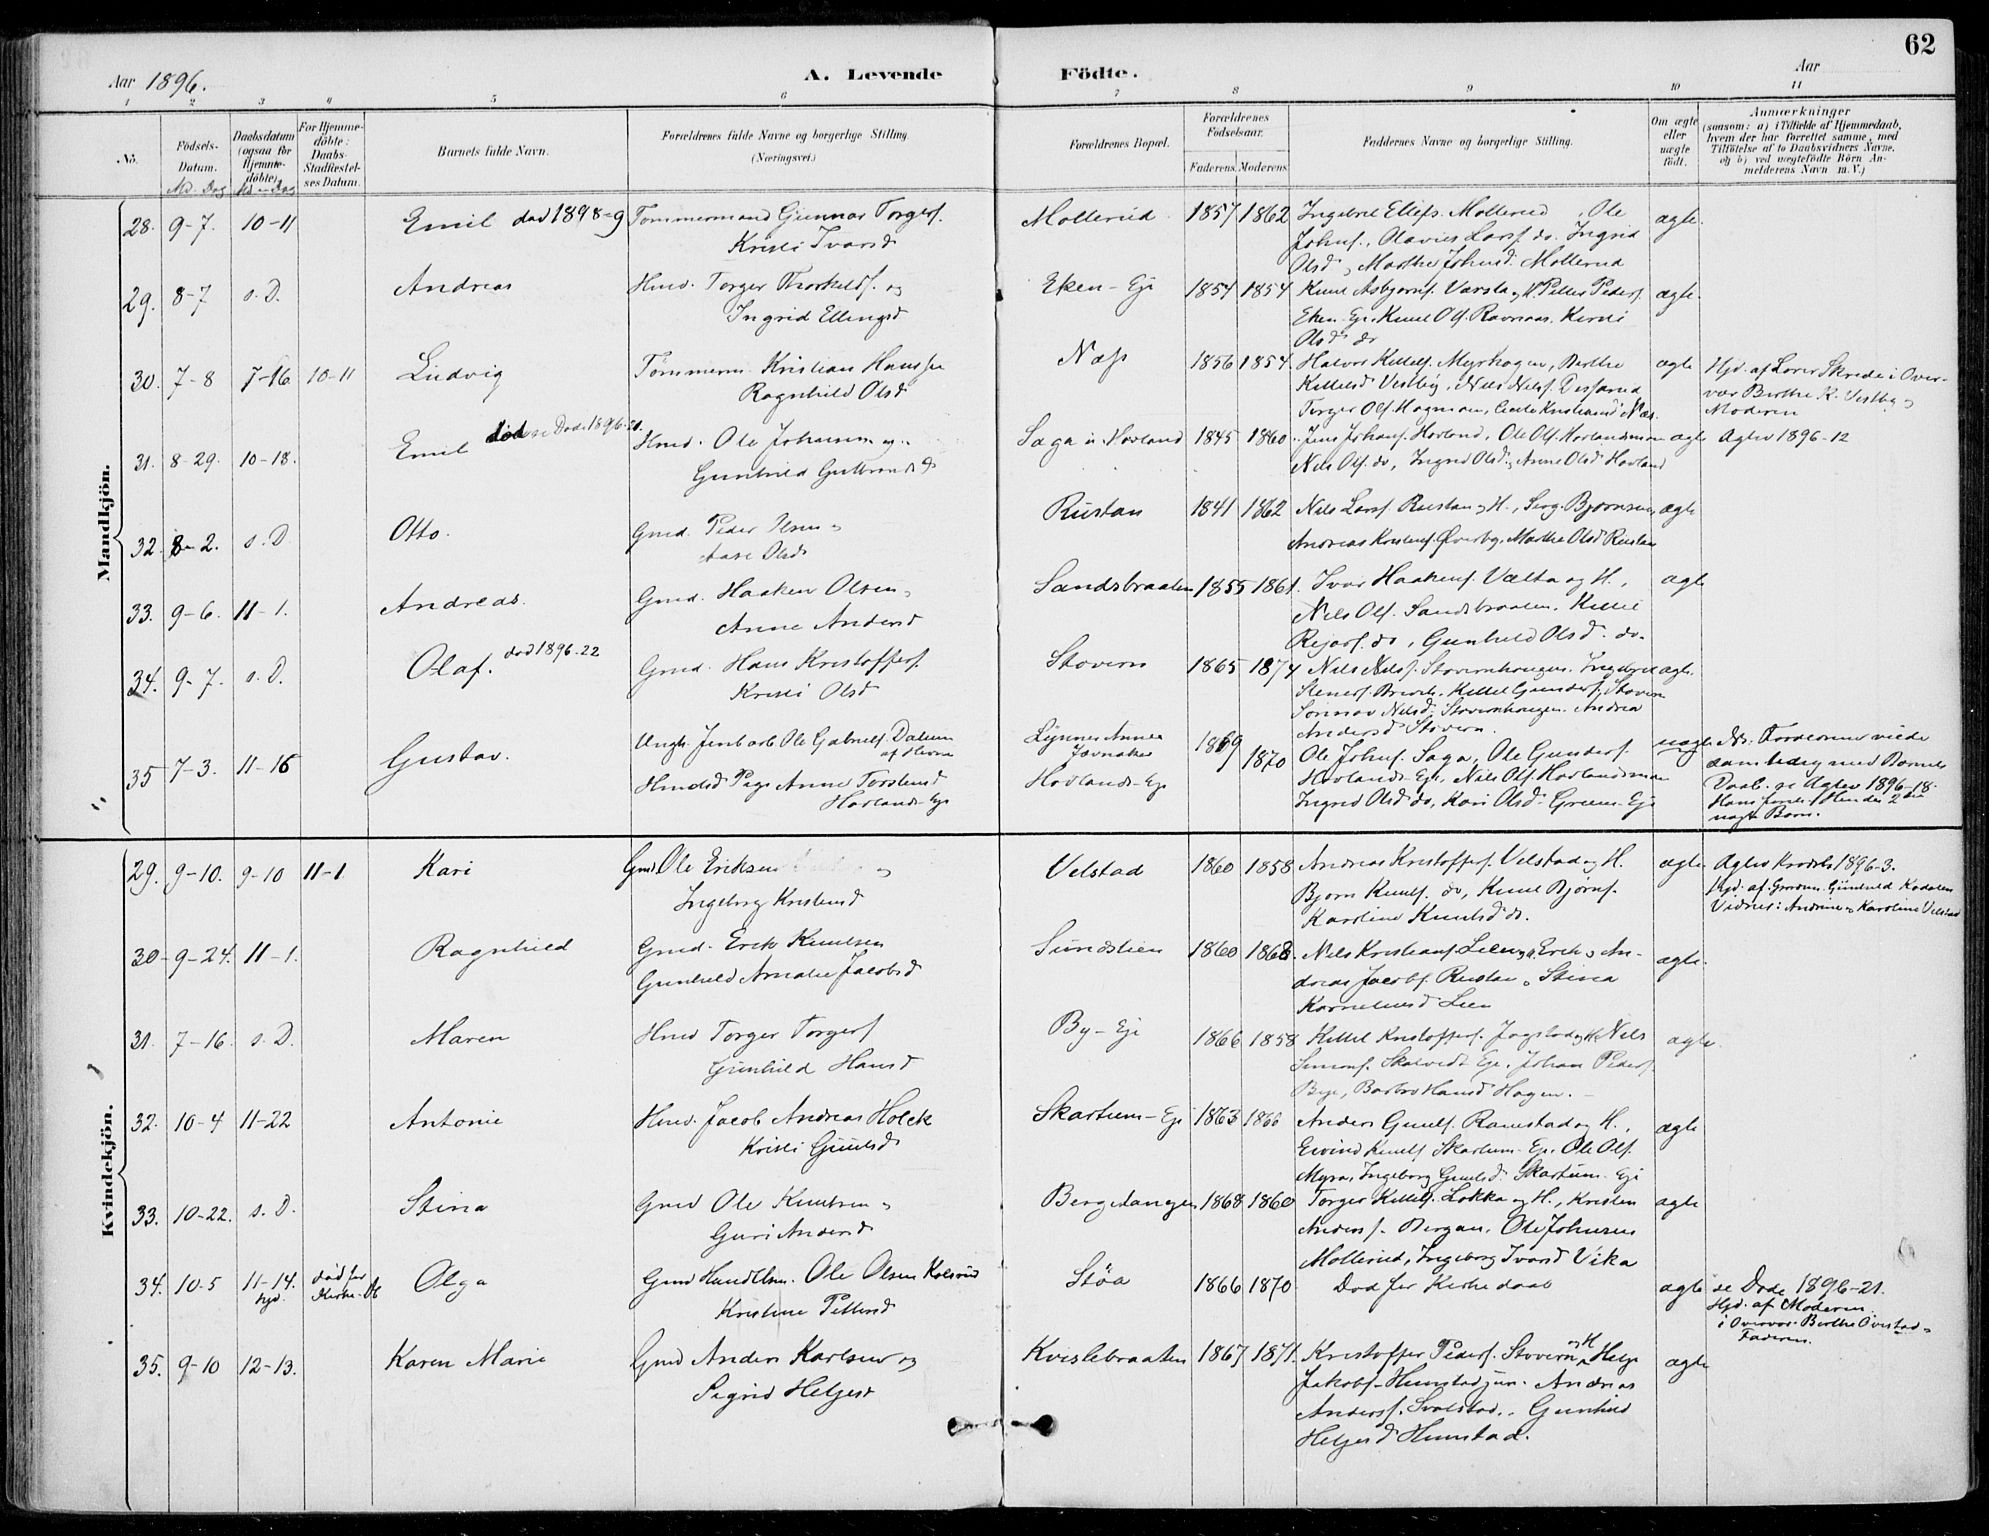 62
Aar 1896.
A. Levende Födte.
Aar
1 2 3 4 5 6 7 8 9 10 11
No.
Födsels-Datum.
Md. Dag
Daabsdatum (ogsaa for Hjemme-döbte)
Md - Dag
For Hjemme-döbte: Daabs-Stadfæstel-ses Datum.
Barnets fulde Navn.
Forældrenes fulde Navne og borgerlige Stilling.
(Næringsvei.)
Forældrenes Bopæl.
Forældrenes Födselsaar.
Faderens Moderens
Faddernes Navne og borgerlige Stilling.
Om ægte eller uægte födt.
Anmærkninger
(saasom: a) i Tilfælde af Hjemmedaab, hvem der har forrettet samme, med Tilföielse af to Daabsvidners Navne, og b) ved uægtefödte Börn An-melderens Navn m.V.)
Mandkjön.
28. 9-7. 10-11 Emil død 1898-9 Tømmermand Gunnar Torgersf. Mollerud 1857 1862 Ingebret Ellefs. Mollerud, Ole ægte.
Kristi Ivarsd Johnsf., Olavies Larsf. do. Ingrid
Olsd, Marthe Johnsd. Mollerud
29. 8-7 s. D. Andreas Hmd. Torger Thorkelds. og Eken-Eje 1854 1854 Knut Asbjørnsf. Varsla, Peder Pedersf. ægte.
Ingrid Ellingsd Eken-Eje, Knut Olsf. Ravnaas, Kirsti
Olsd do
30. 7-8 7-16 10-11 Ludvig Tømmerm. Kristian Hansen Næss 1856 1854 Halvor Kittelsf. Myrhagen, Berthe ægte Hjd. af Lærer Skrede i Over-
Ragnhild Olsd Kittelsd Vestby, Nils Nilsf. vær Berthe K. Vestby og
Torger Olsf. Hagman, Kristiansd Næs. Moderen
31. 8-29. 10-18. Emil død se Døde 1896-20. Hmd. Ole Johansen og Saga u. Hovland 1845 1860 Jens Johansf. Hovland, Ole Olsf. Hovlandsmoen ægte Agtev 1896-12
Gunhild Gulbrandsd Nils Olsf. do, Ingrid Olsd, Anne Olsd Hovland
32. 8-2. s. D Otto. Gmd. Peder og Rustan 1841 1862 Nils Larsf. Rustan og H., Serg. Bjørnsen, ægte
Aase Olsd Andreas Kristensf. Øverby, Marthe Olsd Rustan
33. 9-6. 11-1. Andreas. Gmd. Haaken Olsen, Sandsbraaten 1855 1861. Ivar Haakensf. Vælta og H., ægte
Anne Andersd Nils Olsf. Sandsbraaten. Kittil
Rejersf. do, Gunhild Olsd. do.
34. 9-7. s. D. Olaf. død 1896-22 Gmd. Hans Kristoffersf. Stovern 1865 1874 Nils Nilsf. Stovernhaugen, Ingebret ægte.
Kristi Olsd Stenersf., Kittel Gundersf. Stovern
Sønnøv Nilsd. Stovernhaugen. Andrea
Andersd Stovern.
35 7-3. 11-15 Gustav. Ungk. Jernbarb. Ole Gabrielsf. Dalum 1869 1870 Ole Johnsf. Saga, Ole Gundersf. uægte Forældrene viede
Hmdsd Pige Anne Torstensd Hovlands-Eje Hovlands-Eje Hovlands-Eje, Nils Olsf. Hovlandsmoen samtidig med Barnets
Ingrid Olsd do, Kari Olsd. Green-Eje Daab. se Agtev 1896-18.
Hans første, Hendes 2det
uægte Barn.
Kvindekjön.
29. 9-10. 9-10 11-1 Kari Gmd. Ole Eriksen og Velstad 1860 1858 Andreas Kristoffersf. Velstad og H. ægte. Agtev Krødsh. 1896-3.
Ingeborg Kristensd Bjørn Knutsf. do, Knut Bjørnsf. Hjd. af Gunhild Kadalen
Karoline Knutsd do. Vidner: Andrine og Karoline Velstad
30 9-24. 11-1. Ragnhild Gmd. Erik Knutsen Sundstien 1860 1868 Nils Kristiansf. Lien og H. Erik og An- ægte.
Gunhild Amalie Jacobsd dreas Jacobsf. Rustan, Stina
Kornelusd Lien
31. 7-16. s. D. Maren Hmd Torger Torgersf By-Eje 1866 1858 Kittil Kristoffersf. Jogstad og H. Nils ægte.
Gunhild Hansd Simonsf. Skalvedt Eje, Johan Pedersf.
Bye, Barbro Hansd Hagen.
32. 10-4 11-22 Antonie Hmd. Jacob Andreas Holck Skartum-Eje 1863 1866 Anders Gunulfs. Ramstad og H., ægte
Kristi Gunulsd Eivind Knutsf. Skartum-Eje, Ole Olsf.
Myra, Ingeborg Gunulsd. Skartum-Eje
33. 10-22. s. D. Stina Gmd Ole Knutsen, Bergstangen 1868 1860 Torger Kittelsf. Løkka og H., Kristen ægte
Guri Andersd Andersf. Bergan, Ole Johnsen
Mollerud, Ingeborg Ivarsd Vika
34. 10-5 11-14. hjd. død før Kirke-Db Olga Gmd Handelsm. Ole Olsen Kolsrud Støa 1866 1870 Død før Kirkedaab ægte se Døde 1896-21.
Kristine Pettersd Hjd. af Moderen
i Overvær Berthe Ovestad og
Faderen.
35. 9-10 12-13. Karen Marie Gmd Anders Karlsen og Kvislebraaten 1867 1871. Kristoffer Pedersf. Stovern og H. Helge ægte
Sigrid Helgesd Jakobsf. Humstad jun. Andreas
Andersf. Svalstad, Gunhild
Helgesd Humstad.